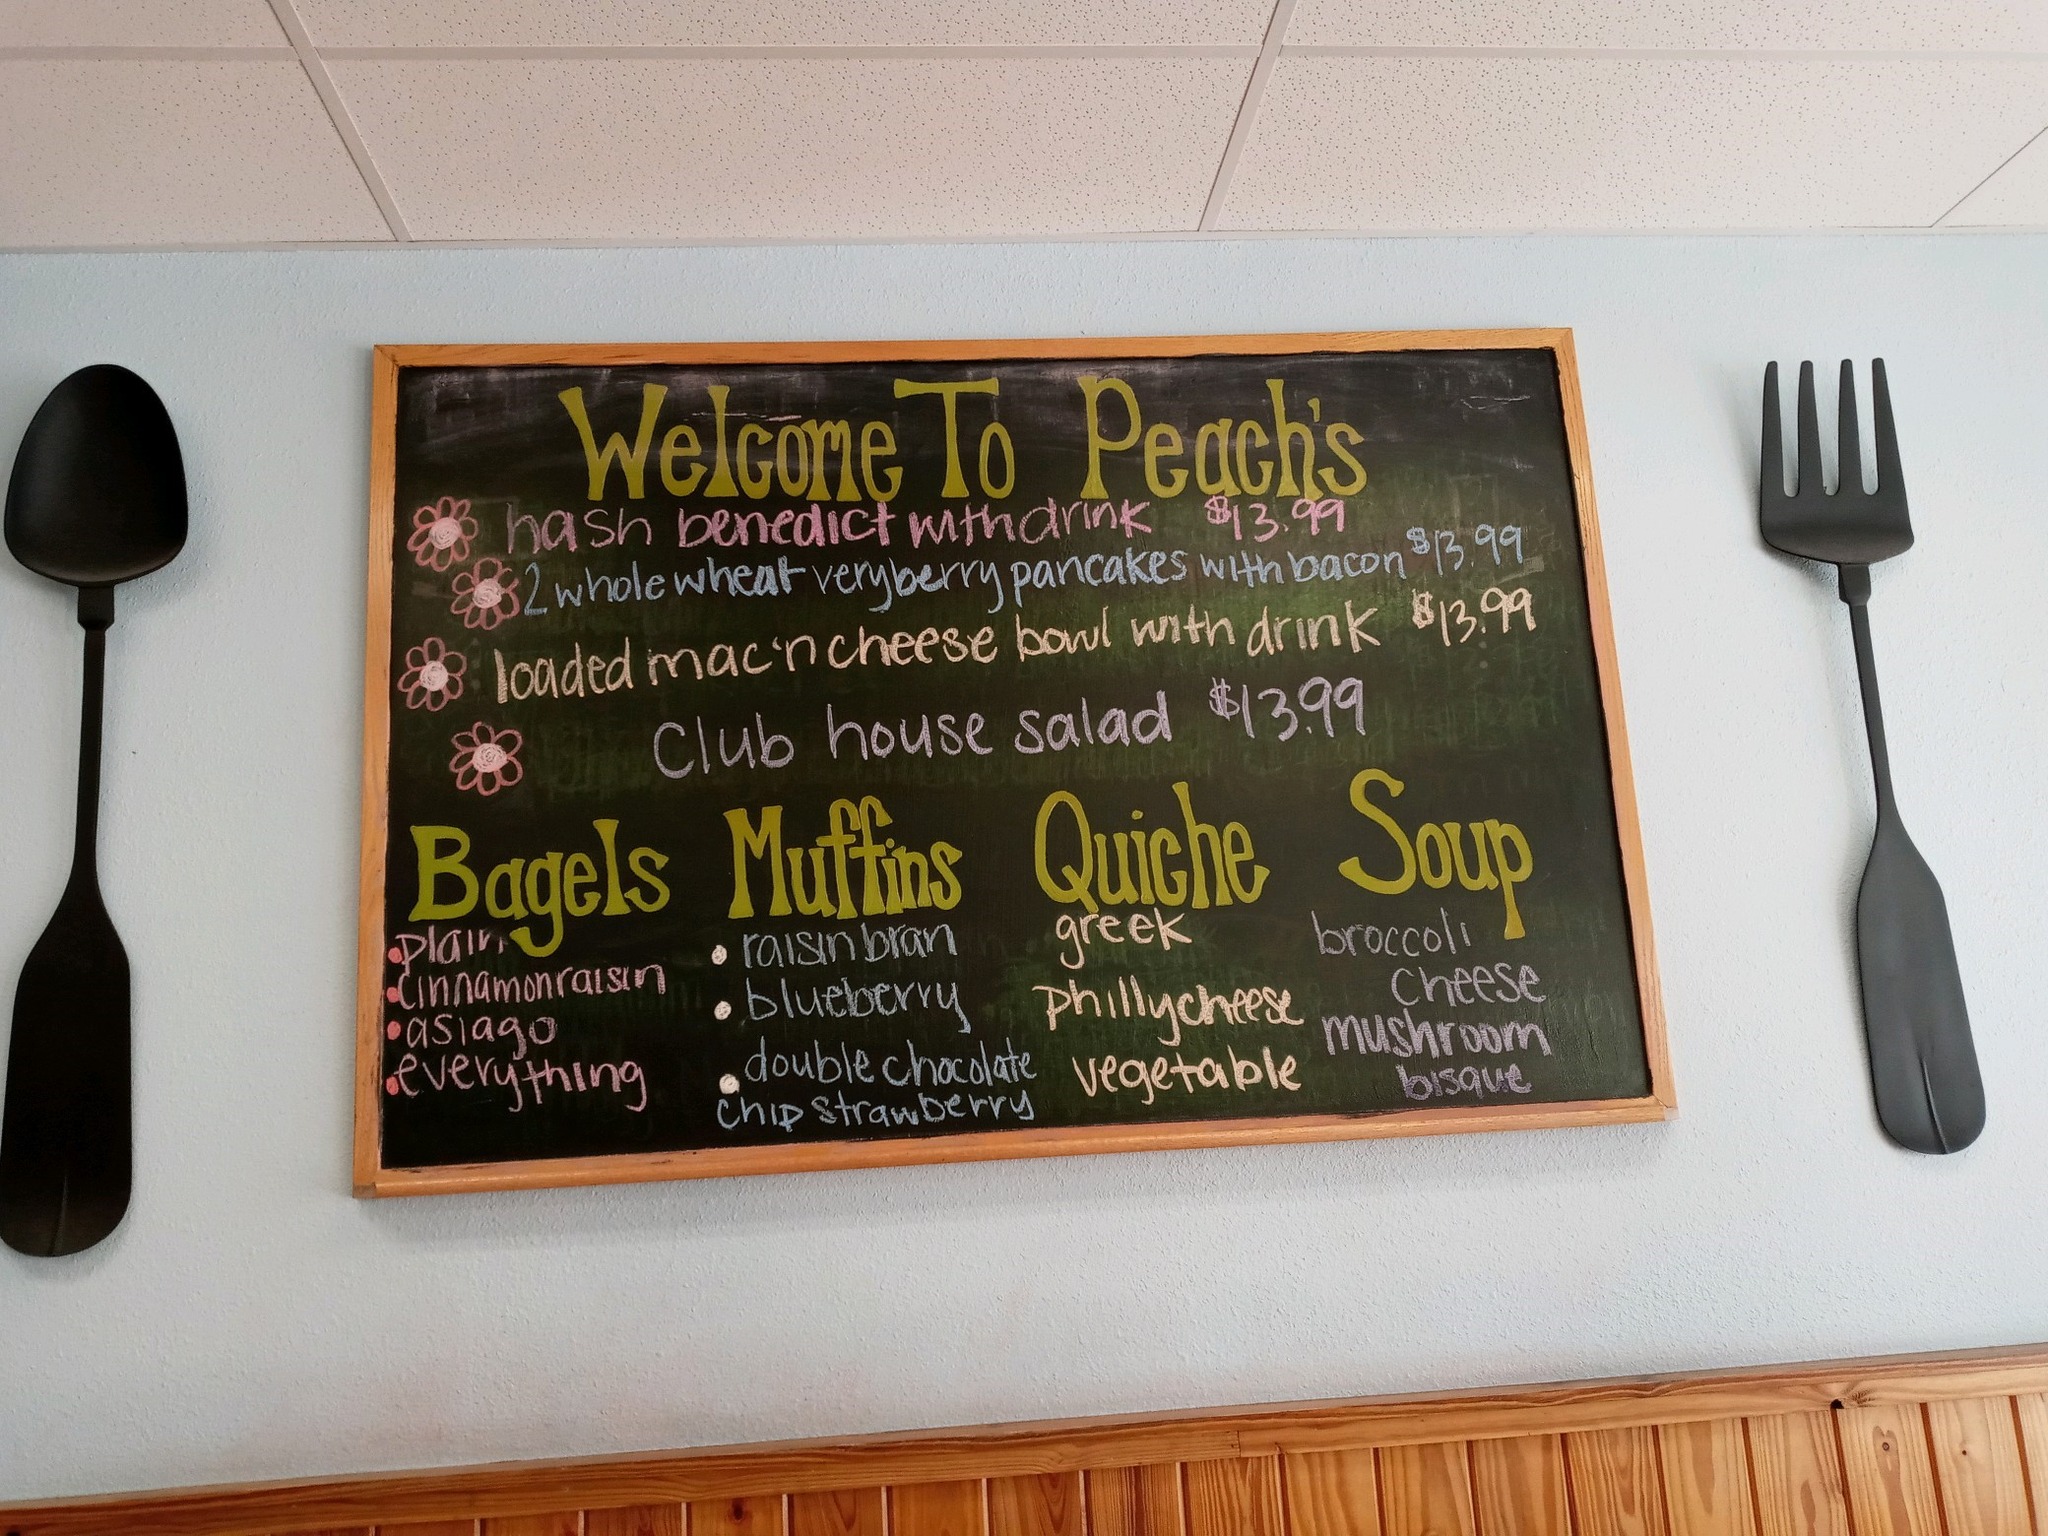 Welcome To Peach's
hash benedict with drink $13.99
2 whole wheat very berry pancakes with bacon $13.99
loaded mac'n cheese bowl with drink $13.99
Club house salad $13.99
Bagels
plain
cinnamon raisin
asiago
everything
Muffins
raisin bran
blueberry
double chocolate
chip strawberry
Quiche
greek
phillycheese
vegetable
Soup
broccoli
cheese
mushroom
bisque